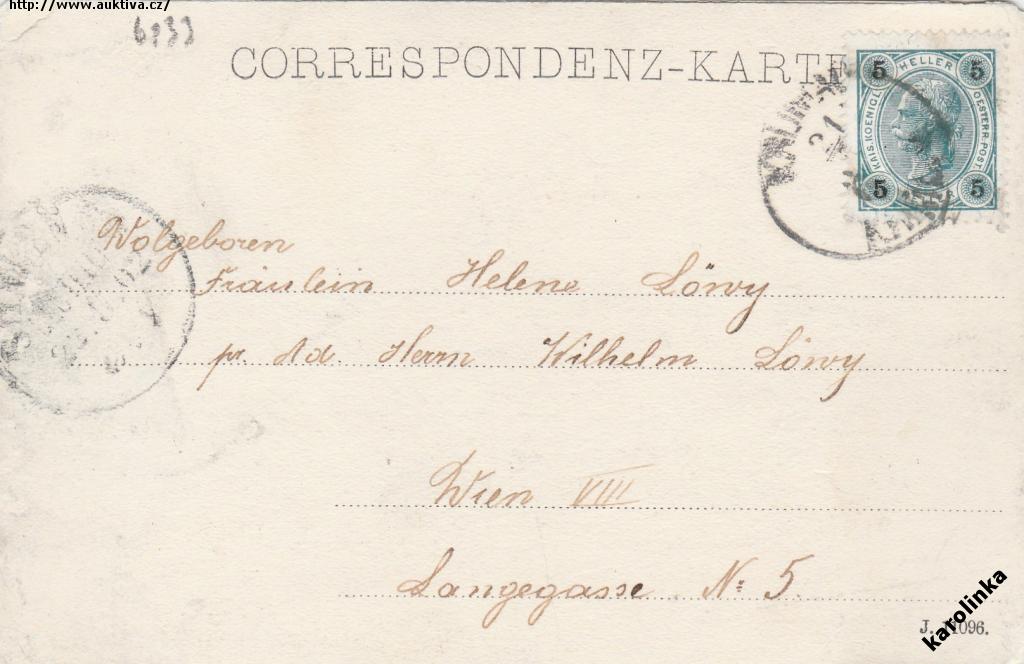 http://www.auktiva.cz/
6933
CORRESPONDENZ-KARTE
5 HELLER 5
KAIS. KOENIGL. OESTERR. POST
5 5
Wolgeboren
Fräulein Helene Löwy
pr. Ad. Herrn Wilhelm Löwy
Wien VIII
Langegasse No 5.
J. 11096.
karolinka